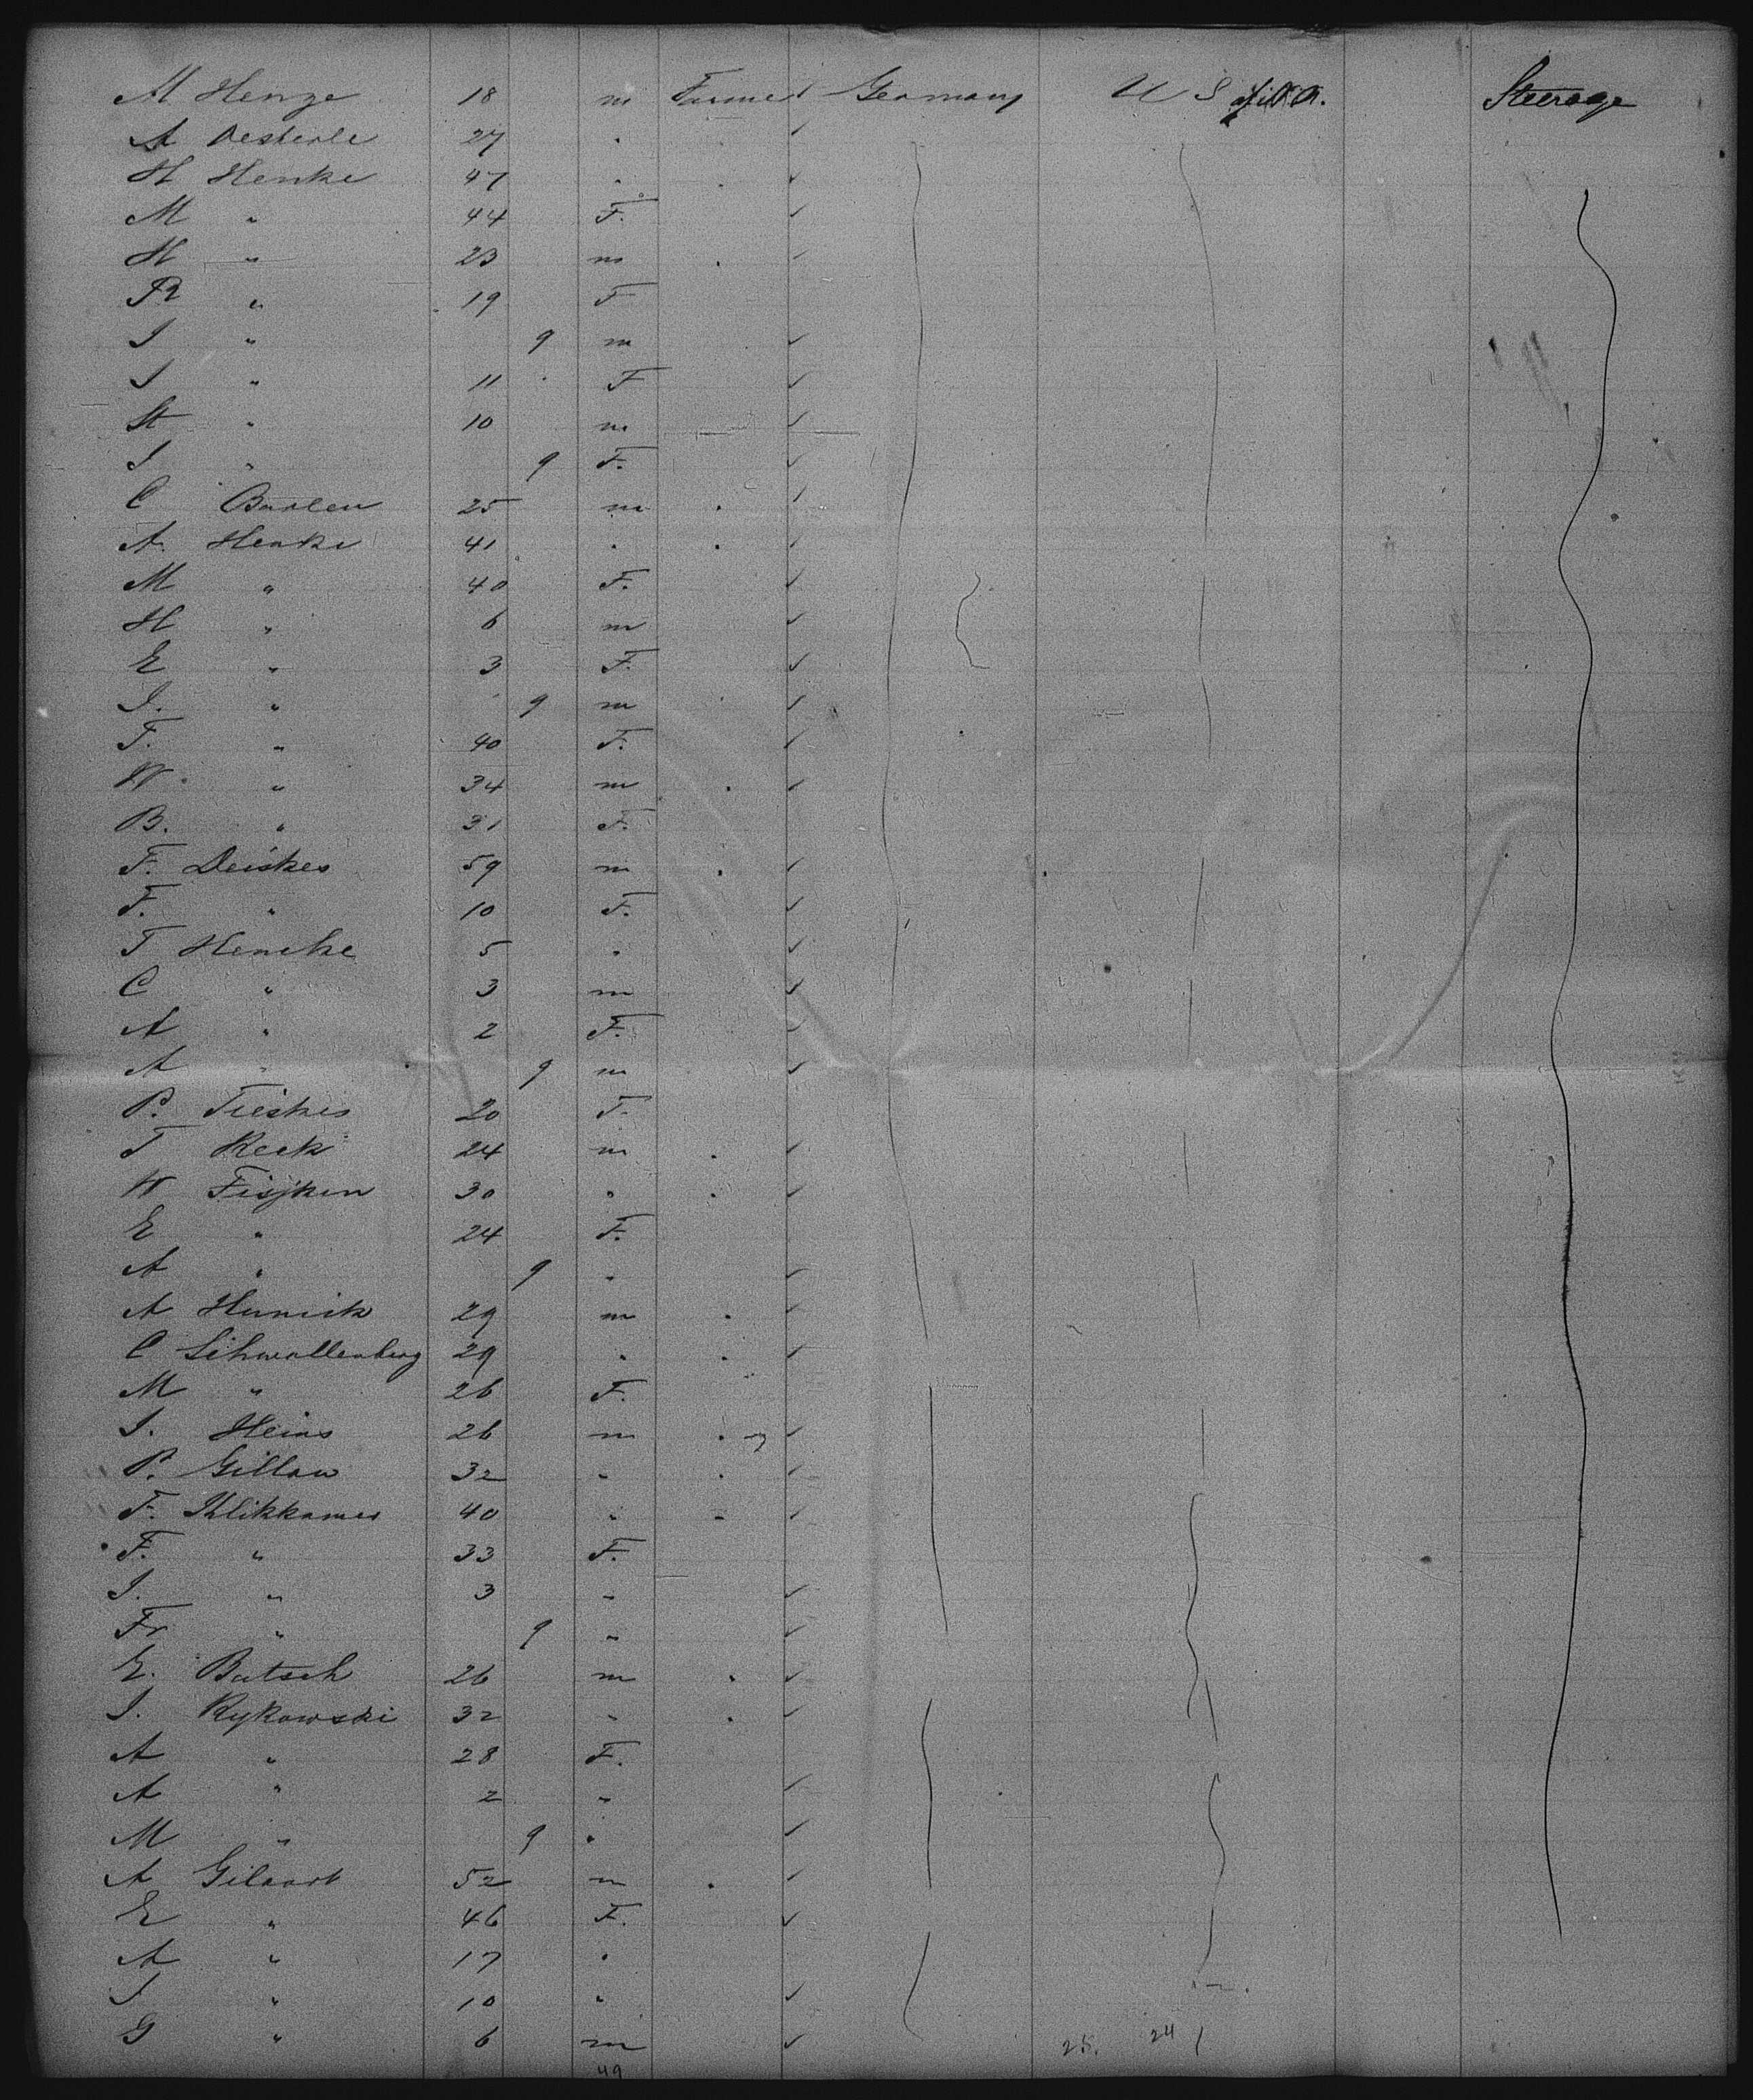 M Henze 18 m Farmer Germany U S of A. Steerage
A Oesterle 27 "
H Henke 47 " "
M " 44 F.
H " 23 m "
R " 19 F
J " 9 m
J " 11 F
St " 10 m
J " 9 F.
C Barlen 25 m "
A. Henke 41 " "
M " 40 F.
H " 6 m
E " 3 F.
J. " 9 m
F. " 40 F.
W. " 34 m "
B. " 31 F.
F. Deiskes 59 m "
F. " 10 F.
T Hencke 5 "
C " 3 m
A " 2 F.
A " 9 m
P. Tieskes 20 F.
T Reck 24 m "
W Fisjken 30 " "
E " 24 F.
A " 9 "
A Hunick 29 m "
C Schwallenberg 29 " "
M " 26 F.
J. Heins 26 m "
P. Gillaw 32 " "
F. Klikkames 40 " "
F. " 33 F.
J. " 3 "
Fr " 9 "
E. Batsch 26 m "
J. Rykowski 32 " "
A " 28 F.
A " 2 "
M " 9 "
A Gilaart 52 m "
E " 46 F.
A " 17 "
J " 10 "
G " 6 m 25. 24 1
49